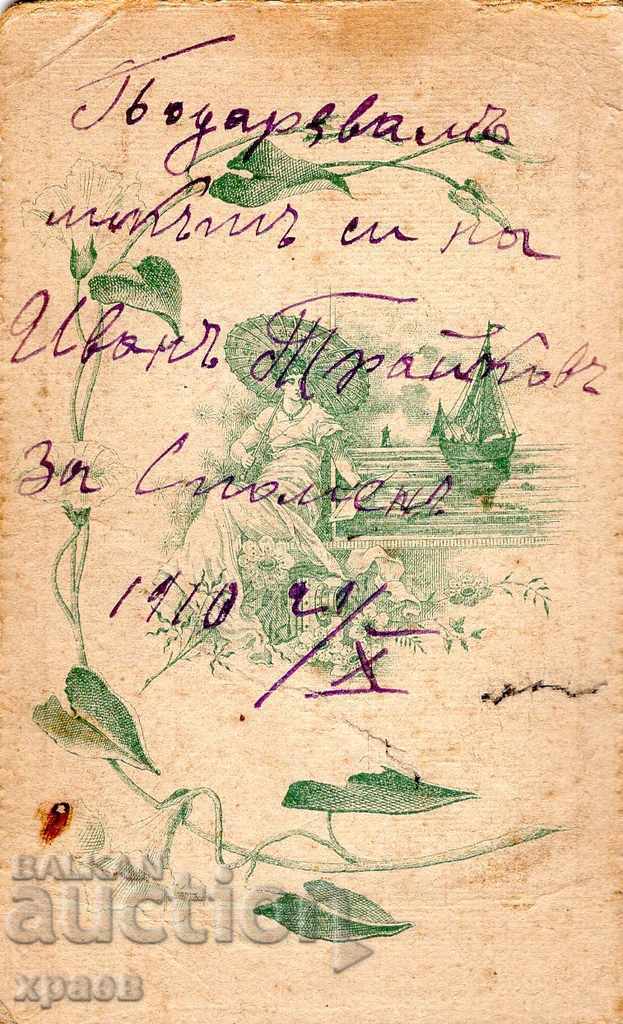 Подарявамъ
ликътъ си на
Иванъ Трайковъ
За Споменъ
1910 21/X
BALKAN
auction
храов